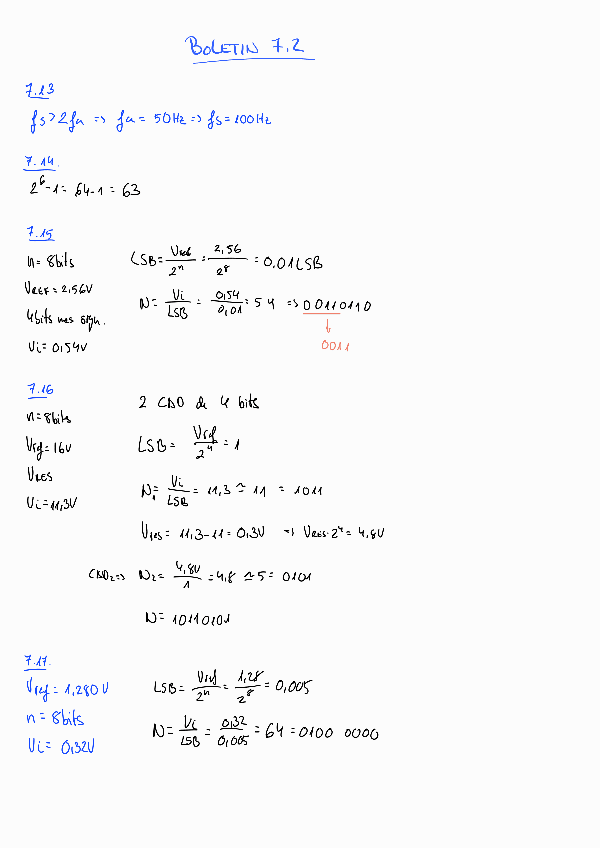 BOLETIN 7.2
7.13
fs>2fa => fa = 50Hz => fs = 100Hz
7.14.
2^6-1 = 64-1 = 63
7.15
n= 8bits
LSB = Vref/2^n = 2,56/2^8 = 0,01 LSB
VREF = 2,56V
N = Vi/LSB = 0,54/0,01 = 54 => 00110110
4bits mas sign.
0011
Vi = 0,54V
7.16
2 CAD de 4 bits
n = 8bits
Vref = 16V
LSB = Vref/2^4 = 1
VRES
Vi = 11,3V
N1 = Vi/LSB = 11,3 ≃ 11 = 1011
Vres = 11,3-11 = 0,3V => VRES·2^4 = 4,8V
CAD2 => N2 = 4,8V/1 = 4,8 ≃ 5 = 0101
N = 10110101
7.17.
Vref = 1,280V
LSB = Vref/2^n = 1,28/2^8 = 0,005
n = 8bits
N = Vi/LSB = 0,32/0,005 = 64 = 0100 0000
Vi = 0,32V